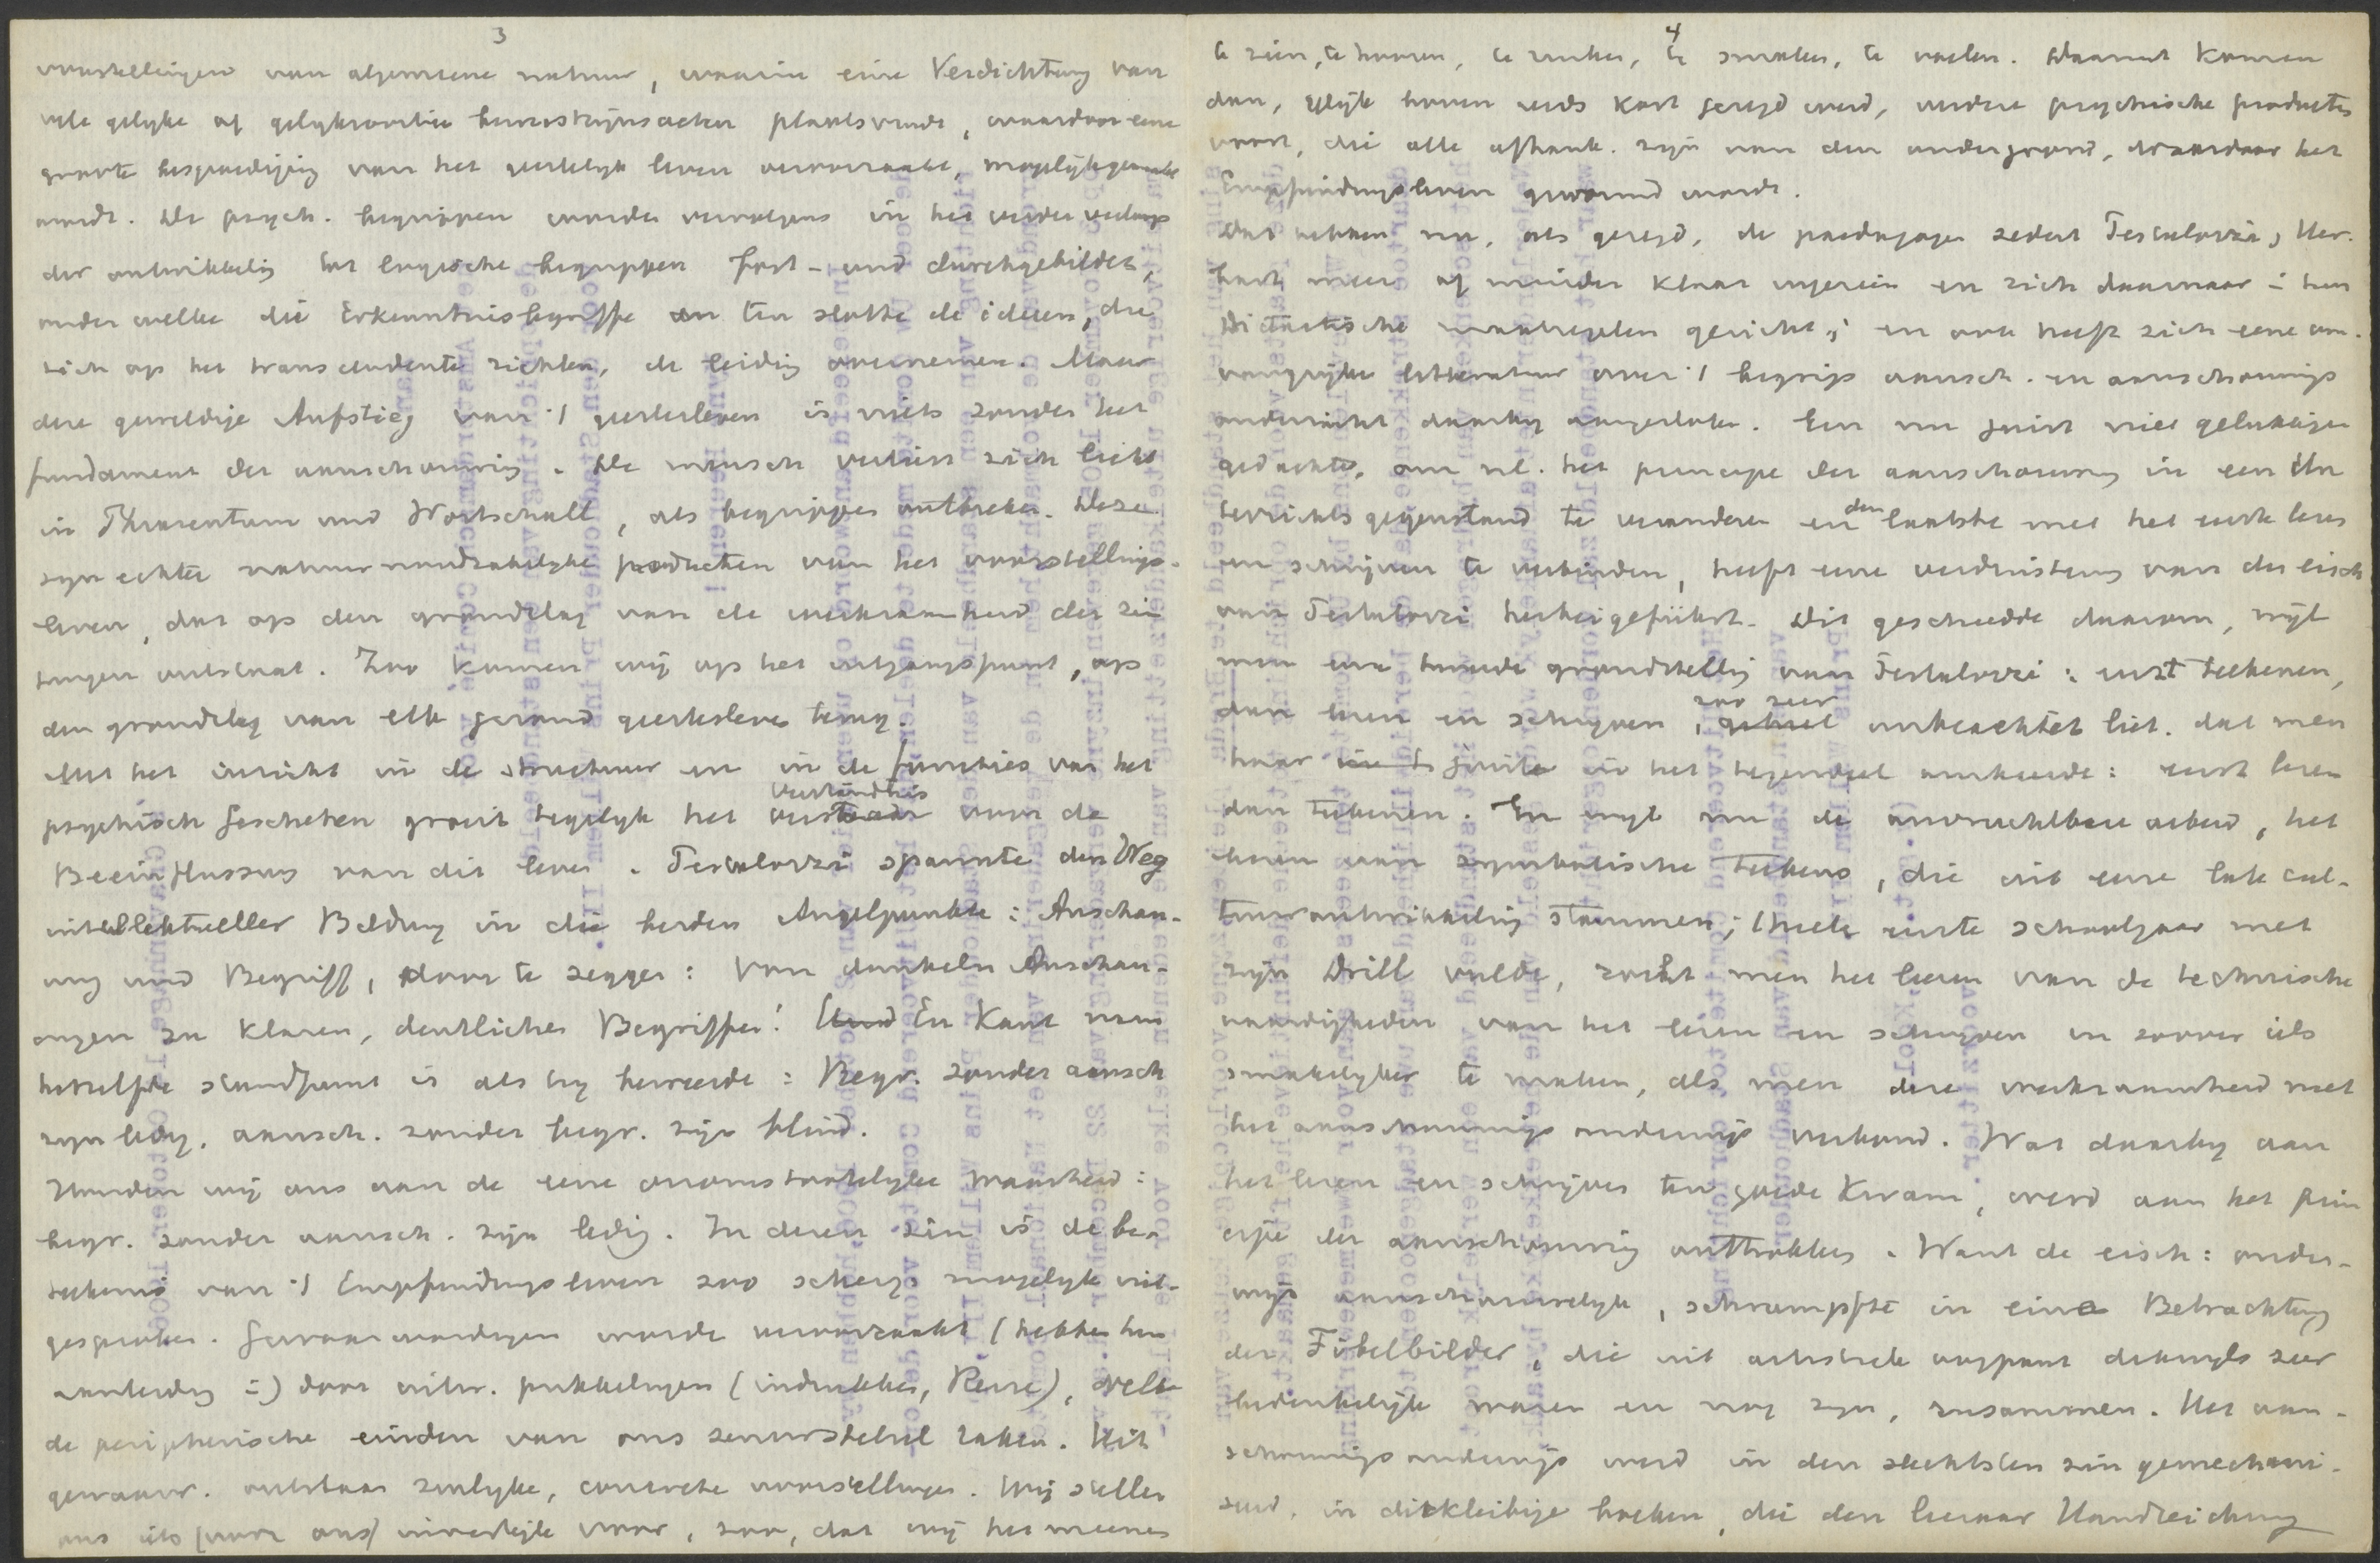 3
voorstellingen van algemeene natuur, waarin eine Verdichtung van
vele gelyke of gelyksoortige bewustzijnsacten plaatsvindt, waardoor eene
groote bespoediging van het geestelyk leven veroorzaakt, mogelyk gemaakt
wordt. De psych. begrippen worden vervolgens in het verder verloop
der ontwikkeling tot logische begrippen fort- und durchgebildet,
onder welke die Erkenntnisbegriffe en ten slotte de ideeen, die
zich op het transcendente richten, de leiding overnemen. Maar
deze geweldige Aufstieg van 't geestesleven is niets zonder het
fundament der aanschouwing. De mensch verliest zich licht
in Phrasentum und Wortschall, als begrippen ontbreken. Deze
zyn echter natuurnoodzakelyke producten van het voorstellings-
leven, dat op den grondslag van de werkzaamheid der zin
tuigen ontstaat. Zoo komen wij op het uitgangspunt, op
den grondslag van elk gezond geestesleven terug.
Met het inzicht in de structuur en in de functies van het
psychisch geschehen groeit tegelyk het Verständnis voor de
Beeinflussung van dit leven. Pestalozzi spannte den Weg
intellektueller Bildung in die beiden Angelpunkte: Anschau-
ung und Begriff, door te zeggen: Von dunkeln Anschau-
ungen zu klaren, deutlichen Begriffen! En Kant nam
hetzelfde standpunt in als hy beweerde: Begr. zonder aansch
zyn ledig, aansch. zonder begr. zijn blind.
Houden wij ons aan de eene onomstootelyke waarheid:
begr. zonder aansch. zijn ledig. In dezen zin is de be-
teekenis van 't Empfindungsleven zoo scherp mogelyk uit-
gesproken. Gewaarwordingen worden veroorzaakt (hebben hun
aanleiding in) door uitw. prikkelingen (indrukken, Reize), welke
de peripherische einden van ons zenuwstelsel raken. Uit
gewaarw. ontstaan zinlyke, concrete voorstellingen. Wij stellen
ons iets (voor ons) innerlijk voor, zoo, dat wij het meenen
4
te zien, te hooren, te ruiken, te smaken, te voelen. Daaruit komen
dan, gelijk boven reeds kort gezegd werd, verdere psychische producten
voort, die alle afhank. zijn van den ondergrond, waardoor het
Empfindungsleven gevormd wordt.
Dat hebben nu, als gezegd, de paedagogen sedert Pestalozzi, Her-
bart meer of minder klaar ingezien en zich daarnaar in hun
didactische maatregelen gericht; en ook heeft zich eene om-
vangrijke litteratuur over 't begrip aansch. en aanschouwings
onderricht daarby aangesloten. Een nu juist niet gelukkige
gedachte, om nl. het principe der aanschouwing in een Un
terrichtsgegenstand te veranderen en den laatste met het eerste lezen
en schrijven te verbinden, heeft eene verduistering van den eisch
van Pestalozzi herbeigeführt. Dit geschiedde daarom, wijl
men eene tweede grondstelling van Pestalozzi: eerst teekenen,
dan lezen en schryven, zoo zeer unbeachtet liet, dat men
haar juist in het tegendeel omkeerde: eerst lezen
dan teekenen. En wyl nu de onvruchtbare arbeid, het
leeren van symbolische teekens, die uit eene late cul-
tuurontwikkeling stammen, 't heele eerste schooljaar met
zijn Drill vulde, zocht men het leeren van de technische
vaardigheden van het lezen en schryven in zoover iets
smakelyker te maken, als men deze werkzaamheid met
het aanschouwingsonderwijs verbond. Wat daarby aan
het lezen en schrijven ten goede kwam, werd aan het prin
cipe der aanschouwing onttrokken. Want de eisch: onder-
wijs aanschouwelyk, schrumpfte in eine Betrachtung
der Fibelbilder, die uit artistiek oogpunt dikwyls zeer
bedenkelijk waren en nog zyn, zusammen. Het aan-
schouwingsonderwijs werd in den slechtsten zin gemechani-
seerd, in dickleibige boeken, die den leeraar Handreichung